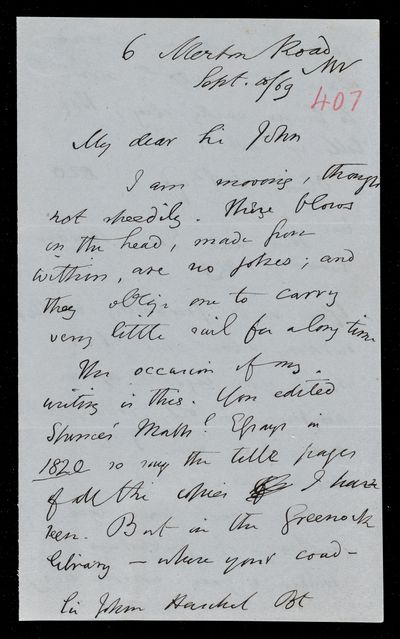 6 Merton Road
NW
Sept. 20/69
407
My dear Sir John
I am moving, though
not speedily. These blows
in the head, made from
within, are no jokes; and
they oblige one to carry
very little sail for a long time
The occasion of my
writing is this. You edited
Spence's Math! Essays in
1820 so say the title pages
of all the copies I have
seen. But in the Greenock
library – where your coad-
Sir John Herschel Bt